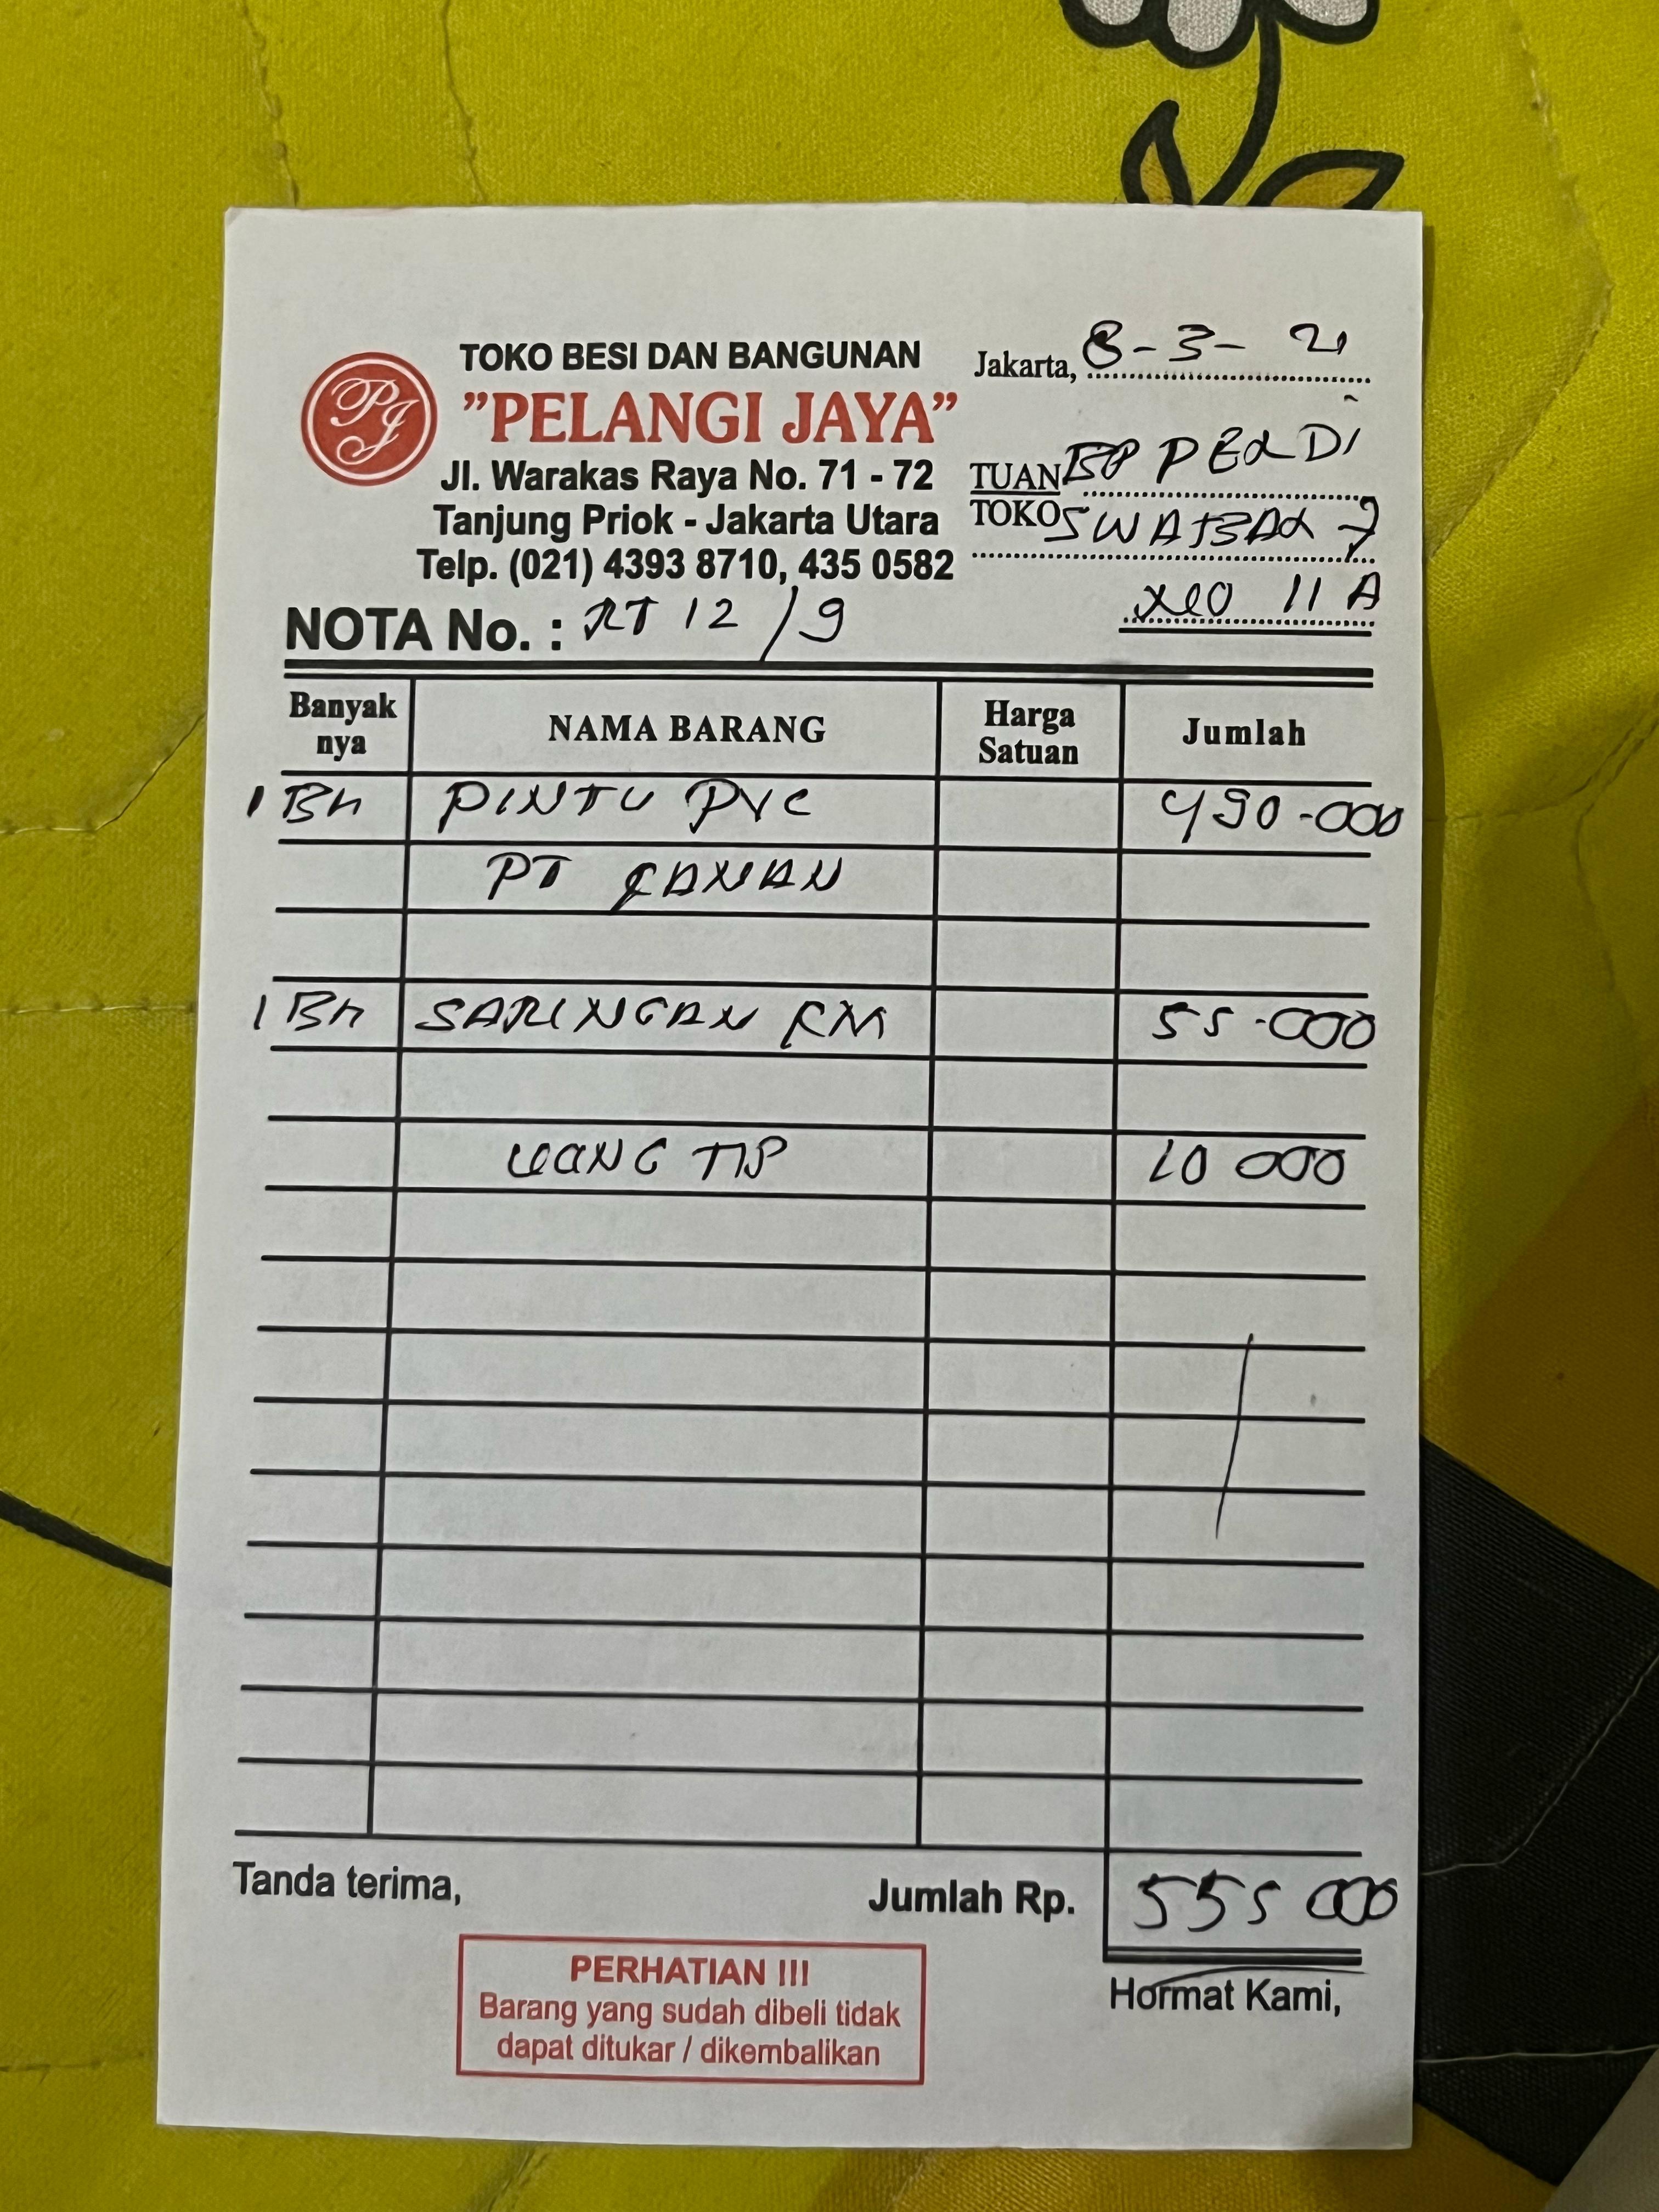 PJ
TOKO BESI DAN BANGUNAN
"PELANGI JAYA"
Jl. Warakas Raya No. 71 - 72
Tanjung Priok - Jakarta Utara
Telp. (021) 4393 8710, 435 0582
Jakarta, 8-3- 21
TUAN BP PERDI
TOKO SWASBAR 7
NO 11 A
NOTA No. : RT 12 / 9
Banyak nya NAMA BARANG Harga Satuan Jumlah
1 BH PINTU PVC 490.000
PT
1 BH SARINGAN KM 55.000
UANG TIP 10 000
Tanda terima, Jumlah Rp. 555 000
PERHATIAN !!!
Barang yang sudah dibeli tidak
dapat ditukar / dikembalikan
Hormat Kami,